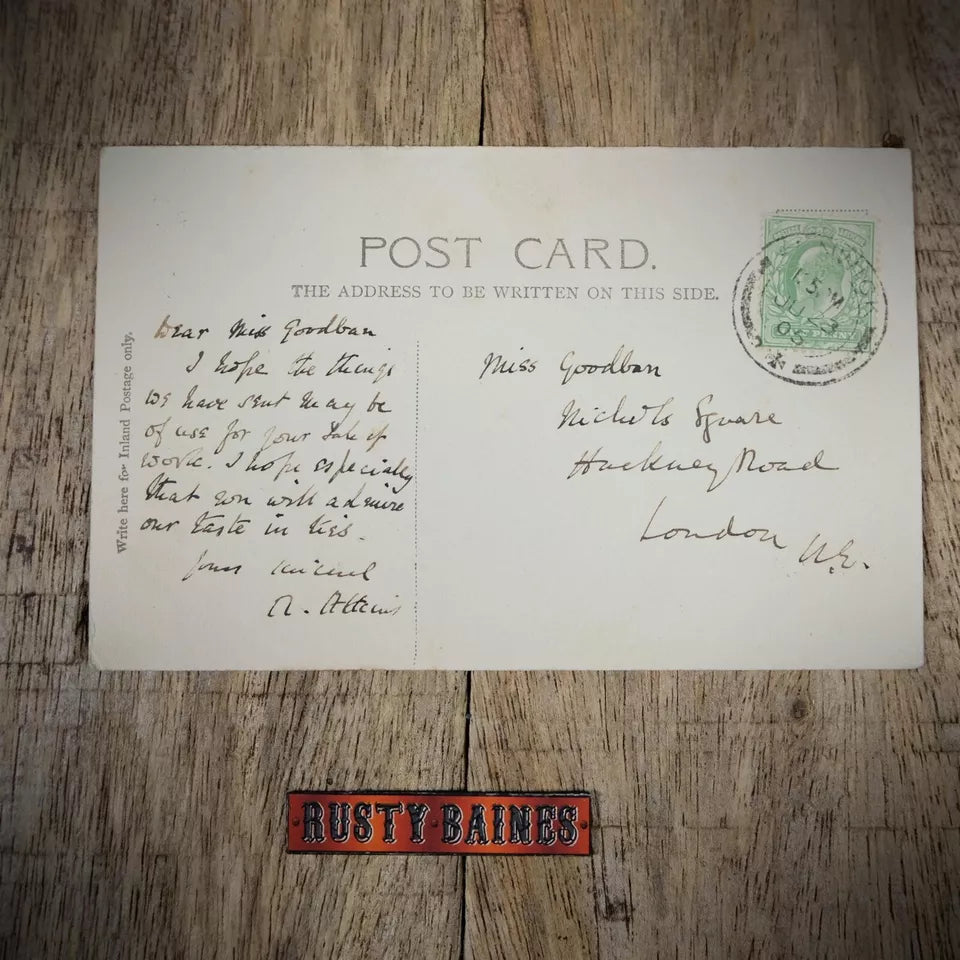 POST CARD.
THE ADDRESS TO BE WRITTEN ON THIS SIDE.
Write here for Inland Postage only.
Dear Miss Goodban
I hope the things
we have sent may be
of use for your Sale of
work. I hope especially
that you will admire
our taste in ties.
Yours
A.
Miss Goodban
Nichols Square
Hackney Road
London N.E.
JU
05
RUSTY BAINES